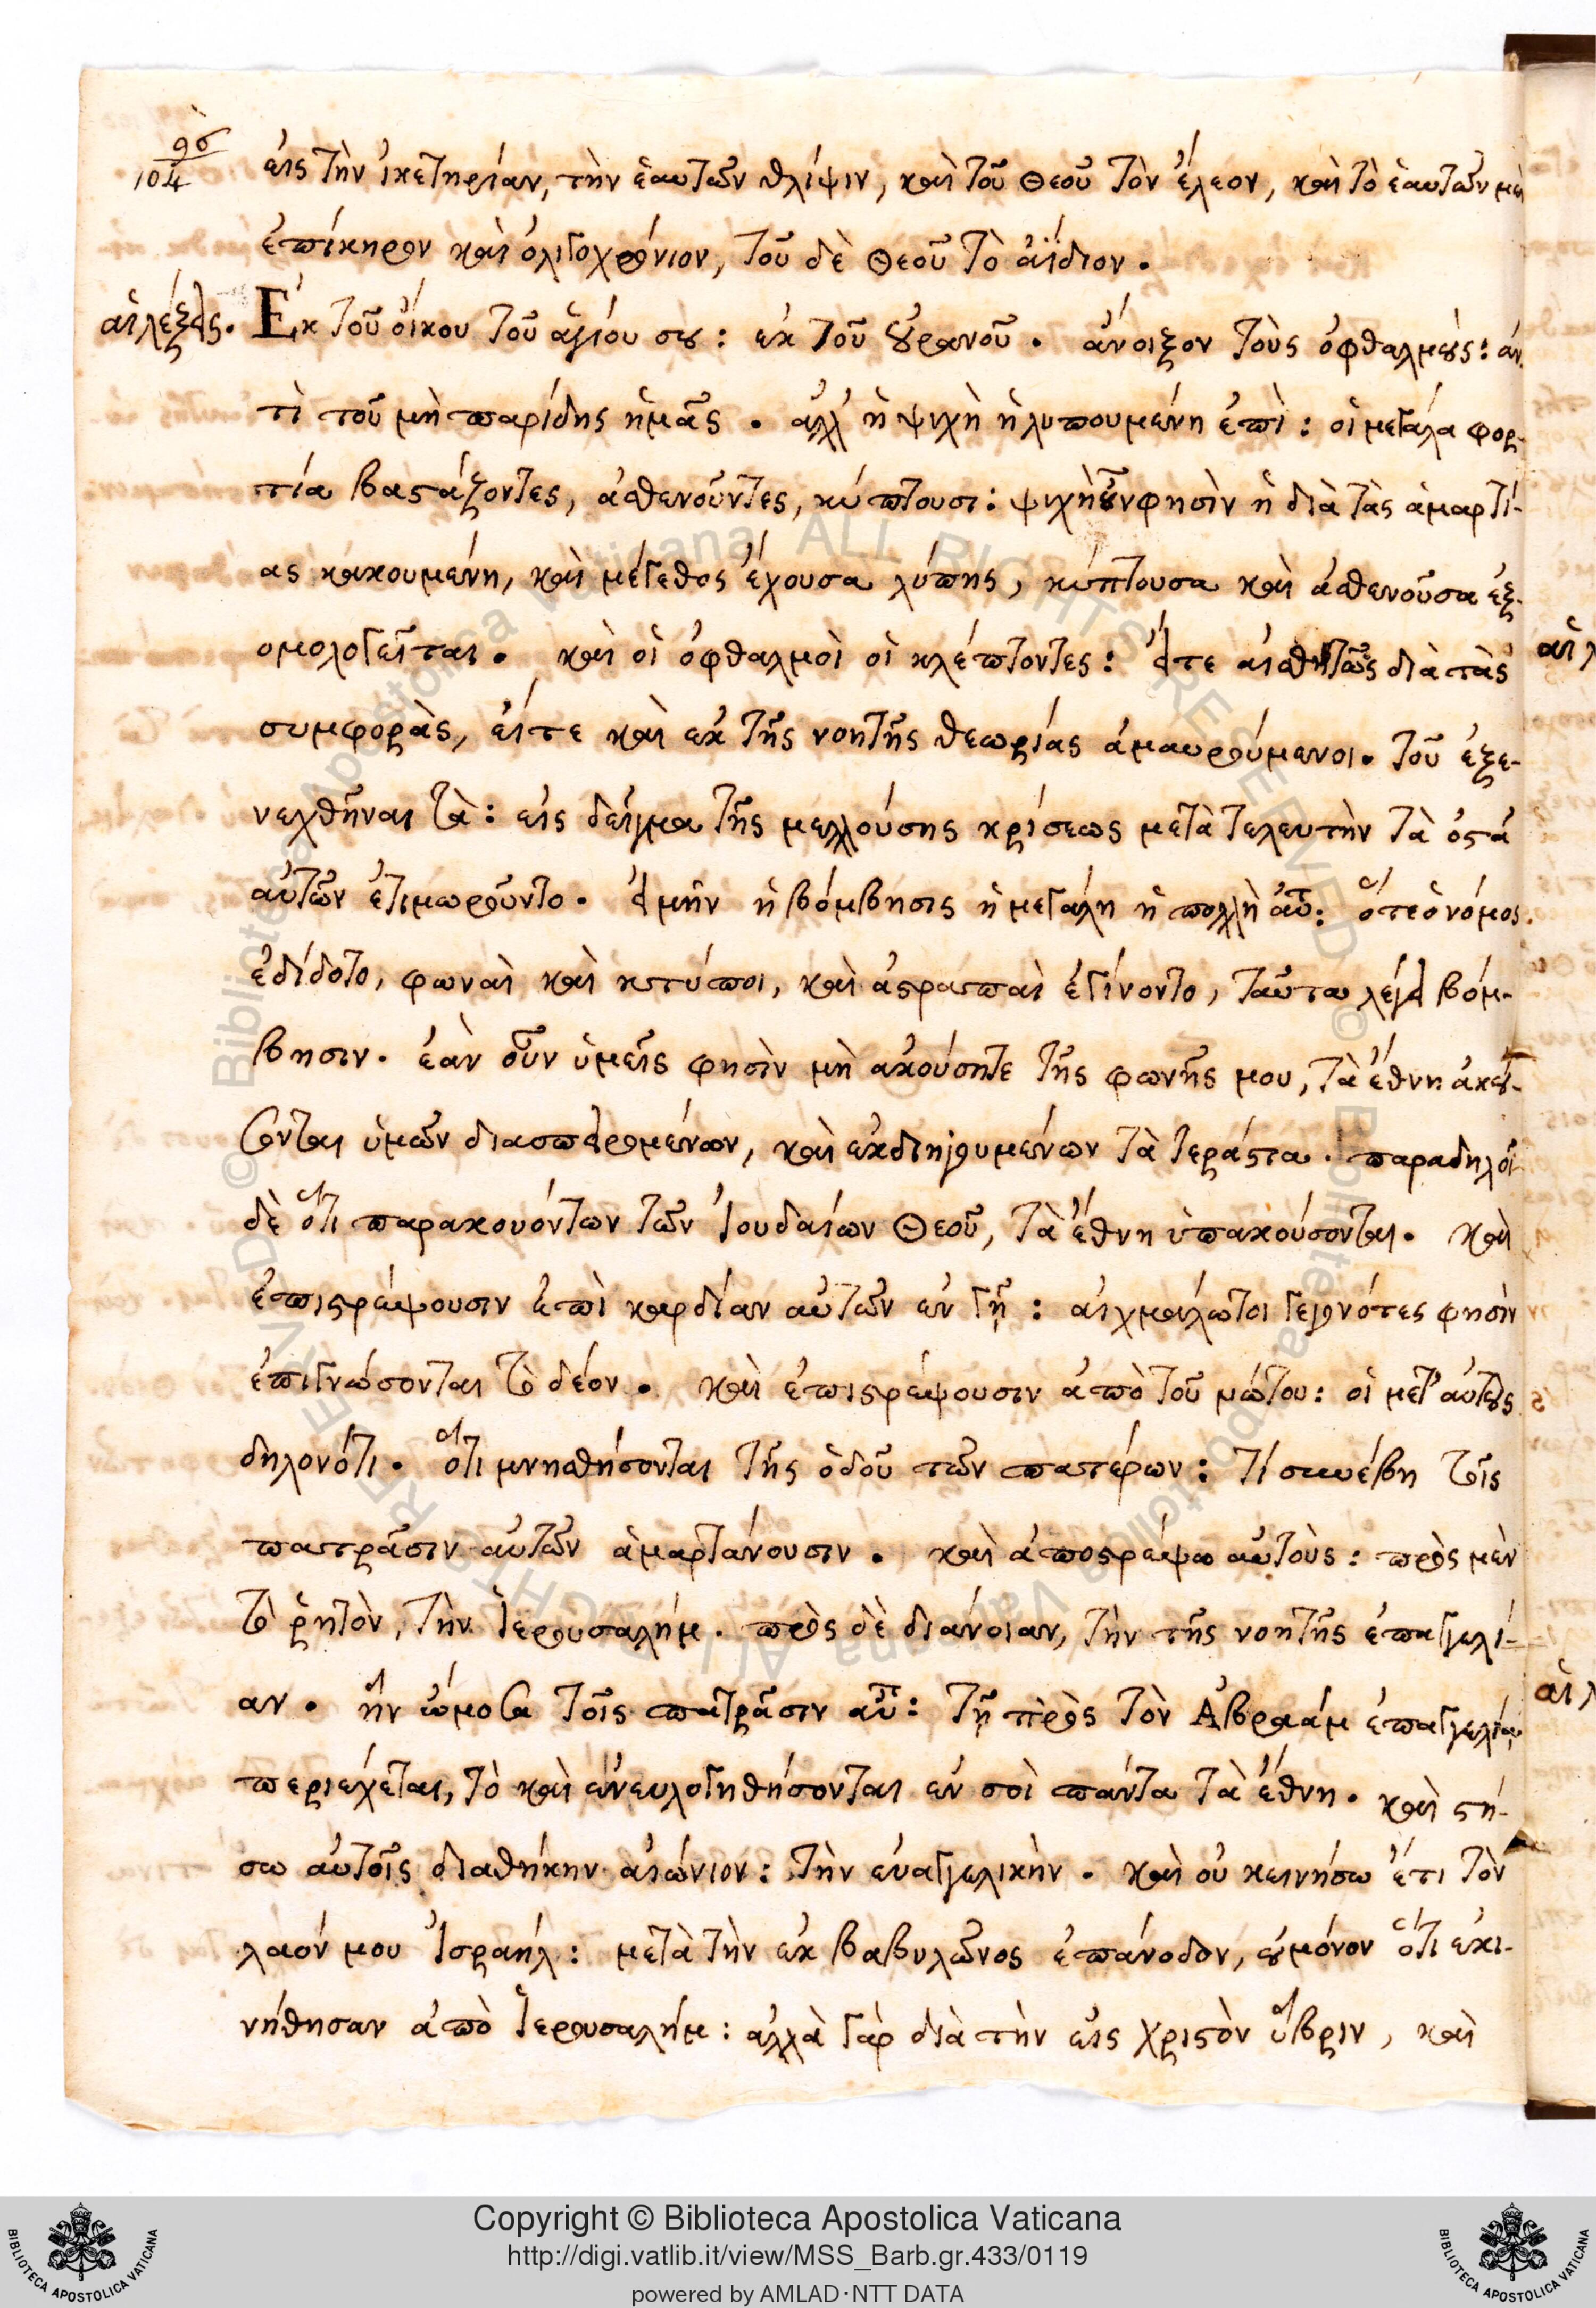 96
104
εἰς τὴν ἱκετηρίαν, τὴν ἑαυτῶν θλίψιν, καὶ τοῦ θεοῦ τὸν ἔλεον, καὶ τὸ ἑαυτῶν μὲν
ἐπίκηρον καὶ ὀλιγοχρόνιον, τοῦ δὲ θεοῦ τὸ ἀΐδιον.
αἱ λέξεις. Ἐκ τοῦ οἴκου τοῦ ἁγίου σου: ἐκ τοῦ οὐρανοῦ. ἄνοιξον τοὺς ὀφθαλμούς: ἀν-
τὶ τοῦ μὴ παρίδης ἡμᾶς. ἀλλ' ἡ ψιχὴ ἡ λυπουμένη ἐπὶ: οἱ μεγάλα φορ-
τία βαστάζοντες, ἀσθενοῦντες, κύπτουσι: ψιχὴ οὖν φησὶν ἡ διὰ τὰς ἁμαρτί-
ας κακουμένη, καὶ μέγεθος ἔχουσα λύπης, κύπτουσα καὶ ἀσθενοῦσα ἐξ-
ομολογεῖται. καὶ οἱ ὀφθαλμοὶ οἱ κλέπτοντες: εἴτε αἰσθητῶς διὰ τὰς
συμφορὰς, εἴτε καὶ ἐκ τῆς νοητῆς θεωρίας ἀμαυρούμενοι. τοῦ ἐξε-
νεχθῆναι τὰ: εἰς δεῖγμα τῆς μελλούσης κρίσεως μετὰ τελευτὴν τὰ ὀστᾶ
αὐτῶν ἐτιμωροῦντο. εἰ μὴν ἡ βόμβησις ἡ μεγάλη ἡ πολλὴ αὕτ: ὅτε ὁ νόμος
ἐδίδοτο, φωναὶ καὶ κτύποι, καὶ ἀστραπαὶ ἐγίνοντο, ταῦτα λέγει βόμ-
βησιν. ἐὰν οὖν ὑμεῖς φησὶν μὴ ἀκούσητε τῆς φωνῆς μου, τὰ ἔθνη ἀκού-
σονται ὑμῶν διασπειρομένων, καὶ ἐκδιηγουμένων τὰ τεράστια. παραδηλοῖ
δὲ ὅτι παρακουόντων τῶν Ἰουδαίων Θεοῦ, τὰ ἔθνη ὑπακούσονται. καὶ
ἐπιστρέψουσιν ἐπὶ καρδίαν αὐτῶν ἐν γῇ: αἰχμαλωτοι γεγονότες φησὶν
ἐπιγνώσονται τὸ δέον. καὶ ἐπιστρέψουσιν ἀπὸ τοῦ νώτου: οἱ μετ' αὐτοὺς
δηλονότι. ὅτι μνησθήσονται τῆς ὁδοῦ τῶν πατέρων: τί συνέβη τοῖς
πατρᾶσιν αὐτῶν ἁμαρτάνουσιν. καὶ ἀποστρέψω αὐτοὺς: πρὸς μὲν
τὸ ῥητὸν, τὴν Ἱερουσαλήμ. πρὸς δὲ διάνοιαν, τὴν τῆς νοητῆς ἐπαγγελί-
αν. ἣν ὤμοσα τοῖς πατρᾶσιν αὐτ: τῇ πρὸς τὸν Ἀβραάμ ἐπαγγελίᾳ
περιέχεται, τὸ καὶ ἐνευλογηθήσονται ἐν σοὶ πάντα τὰ ἔθνη. καὶ στή-
σω αὐτοῖς διαθήκην αἰώνιον: τὴν εὐαγγελικὴν. καὶ οὐ κεινήσω ἔτι τὸν
λαόν μου Ἰσραήλ: μετὰ τὴν ἐκ βαβυλῶνος ἐπάνοδον, οὐ μόνον ὅτι ἐκι-
νήθησαν ἀπὸ Ἱερουσαλήμ: ἀλλὰ γὰρ διὰ τὴν εἰς χριστὸν ὕβριν, καὶ
Copyright © Biblioteca Apostolica Vaticana
http://digi.vatlib.it/view/MSS_Barb.gr.433/0119
powered by AMLAD·NTT DATA
BIBLIOTECA APOSTOLICA VATICANA
BIBLIOTECA APOSTOLICA VATICANA